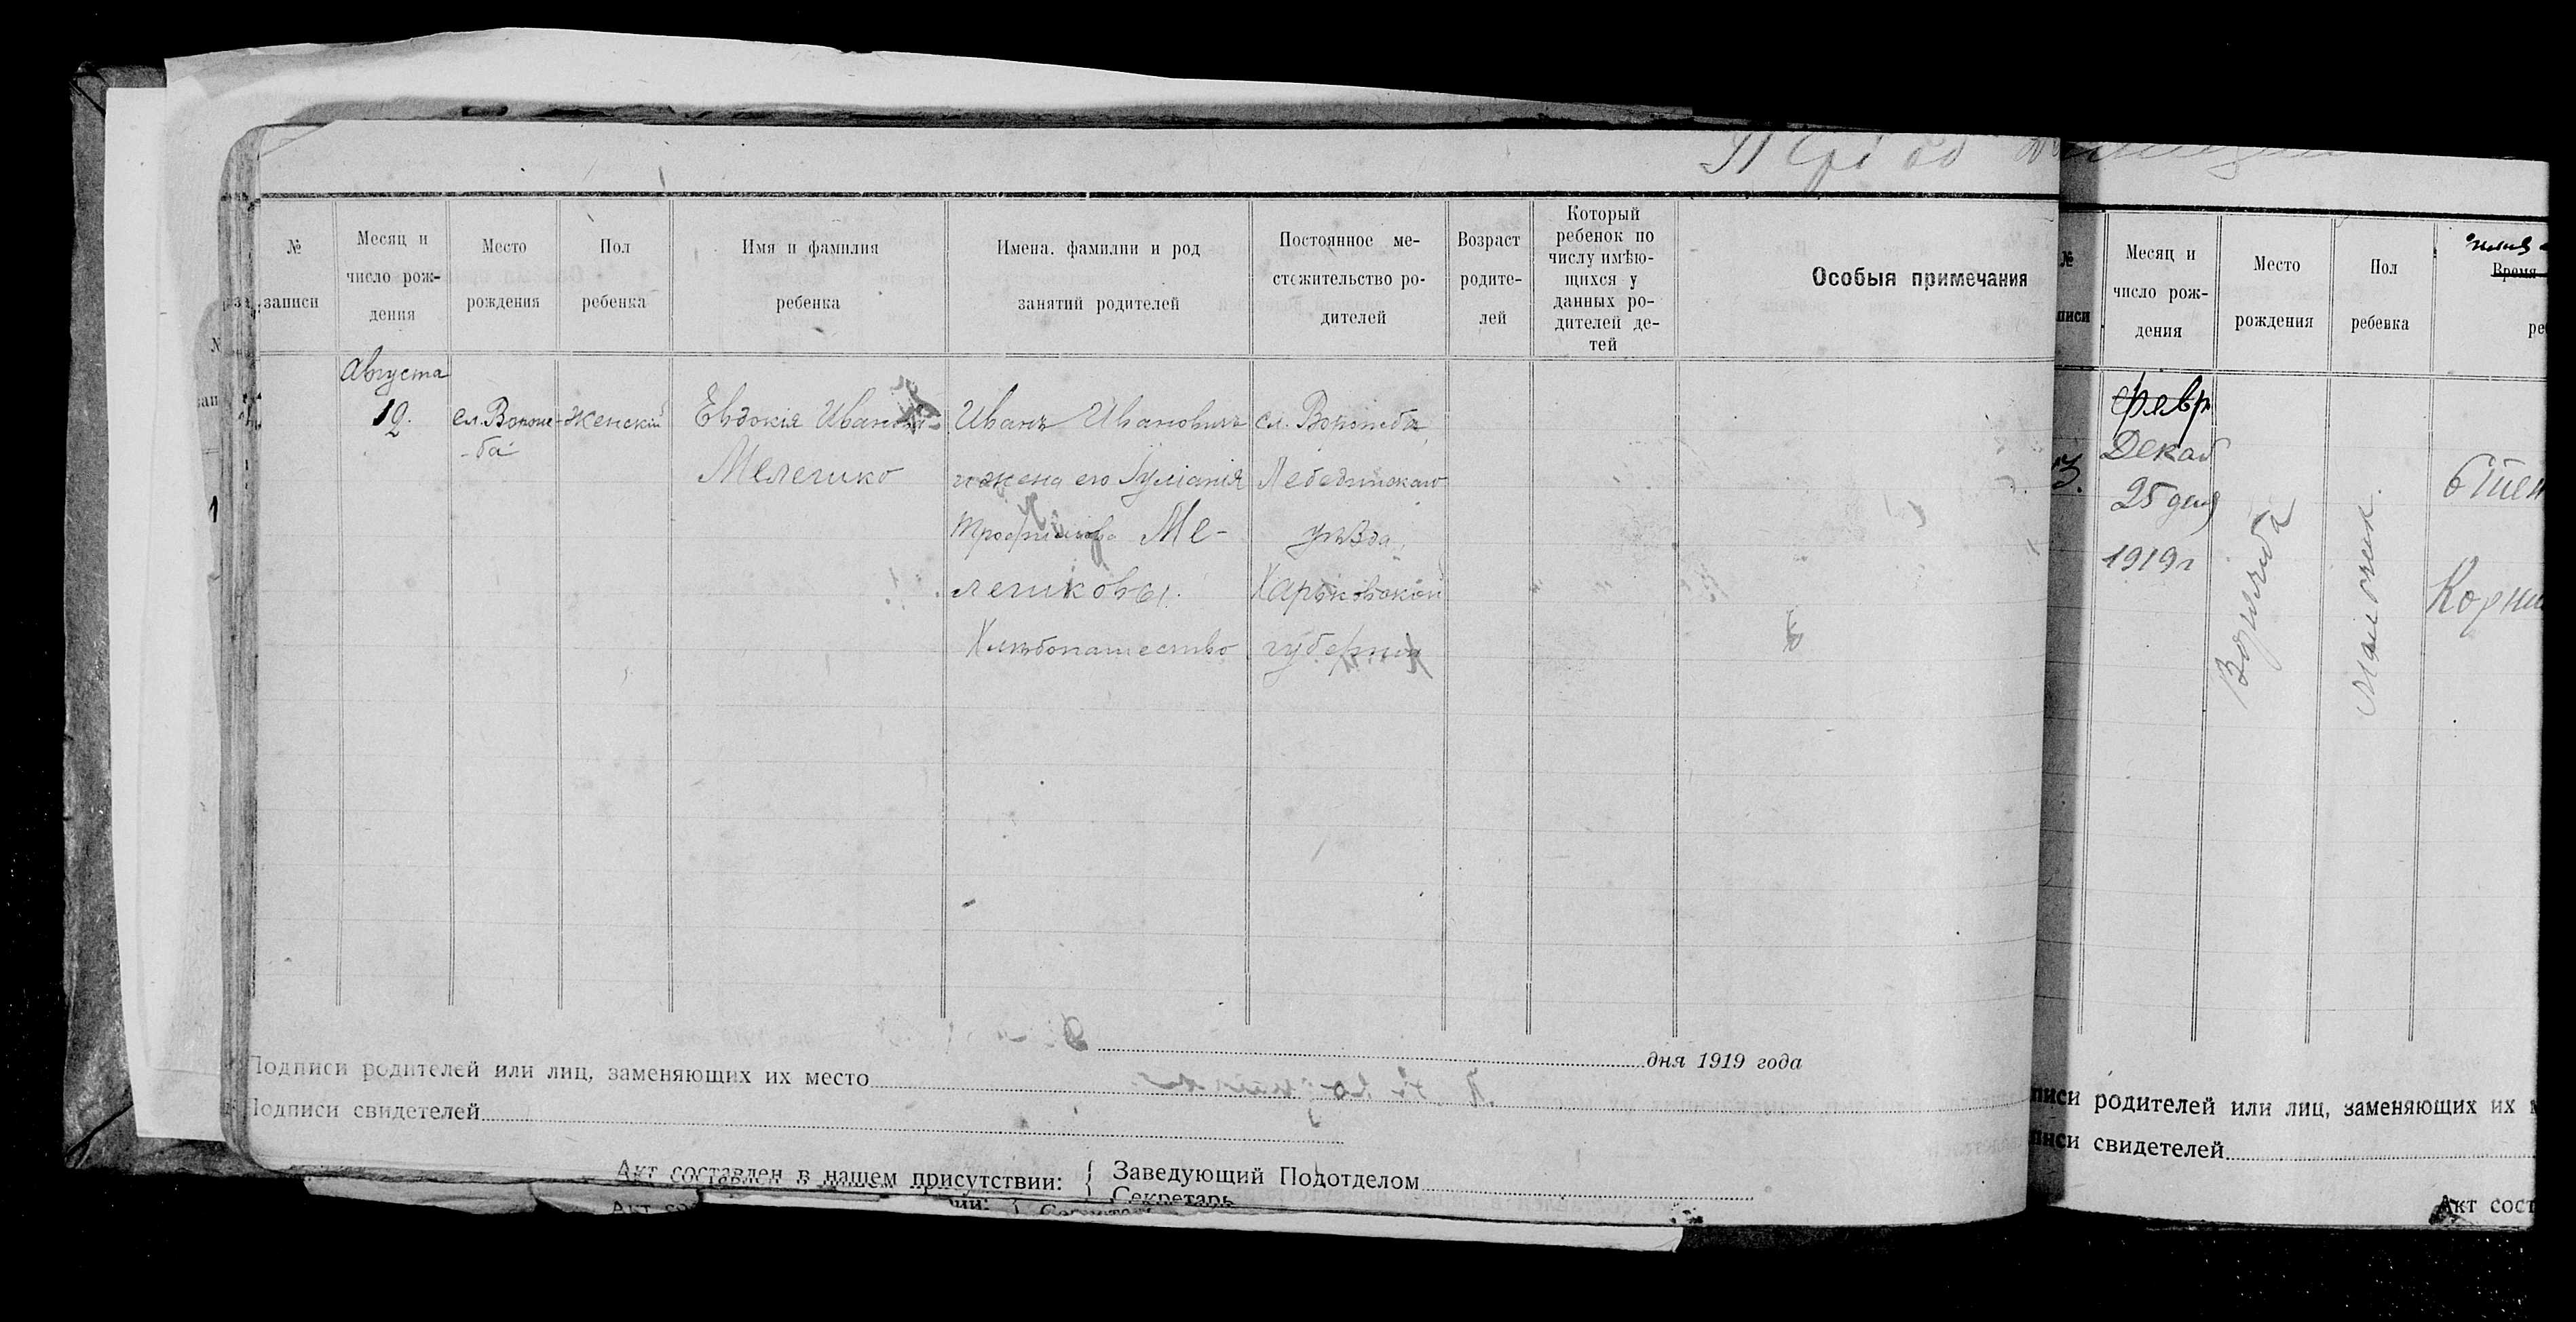 №
записи
Месяц и
число рож-
дения
Место
рождения
Пол
ребенка
Имя и фамилия
ребенка
Имена. фамилии и род
занятий родителей
Постоянное ме-
стожительство ро-
дителей
Возраст
родите-
лей
Который
ребенок по
числу имѣю-
щихся у
данных ро-
дителей де-
тей
Особыя примечания
Августа
19.
сл. Вороже-
-ба
женскій
Евдокія
Мелешко
Иванъ Ивановичъ
и жена его Іуліанія
Ме-
лешковы.
Хлѣбопашество
сл. Ворожба
Лебединскаго
уѣзда,
Харьковской
губерніи
дня 1919 года
Подписи родителей или лиц, заменяющих их место
Подписи свидетелей
Акт составлен в нашем присутствии: { Заведующий Подотделом
Секретарь
№
писи
Месяц и
число рож-
дения
Место
рождения
Пол
ребенка
Время
ре
3.
февр
Декаб
25 дня
1919 г
Ворожба
писи родителей или лиц, заменяющих их
писи свидетелей
Акт сост